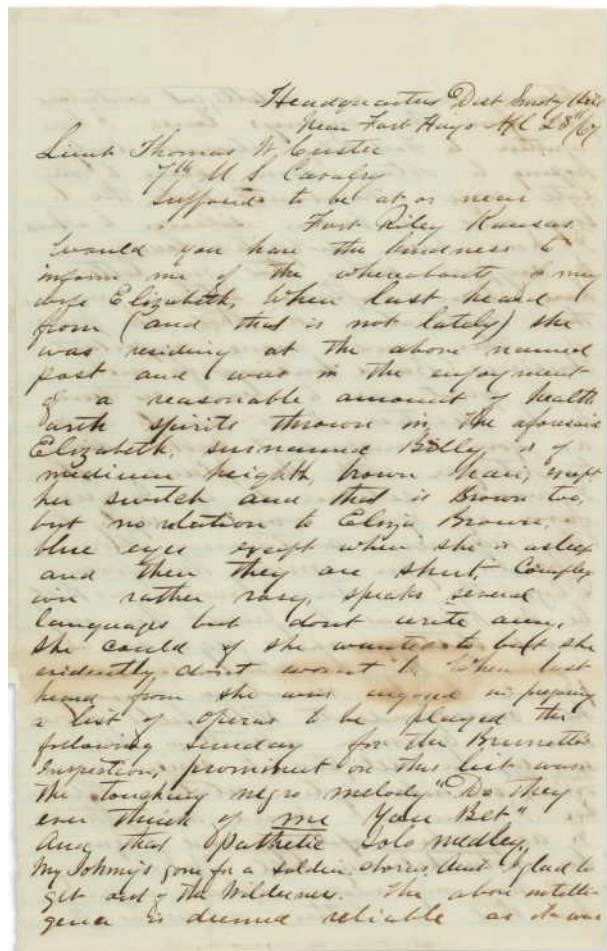 Headquarters Dist Smoky Hill
Near Fort Hays Apl 28th /67
Lieut Thomas W Custer
7th U S Cavalry
Supposed to be at or near
Fort Riley Kansas
Would you have the kindness to
inform me of the whereabouts of my
wife Elizabeth, When last heard
from (and that is not lately) she
was residing at the above named
post and was in the enjoyment
of a reasonable amount of health
with spirits thrown in, The aforesaid
Elizabeth, surnamed Billy, is of
medium heighth, brown hair, except
her switch and that is Brown too,
but no relation to Eliza Brown,
blue eyes except when she is asleep
and then they are shut, Complex
ion rather rosy, speaks several
languages but dont write any,
she could if she wanted to but she
evidently dont want to. When last
heard from she was engaged in preparing
a list of operas to be played the
following sunday for the Brunettes
Inspection, prominent on this list was
the touching negro melody "Do they
ever think of me You Bet"
And that pathetic solo medley,
My Johnny's gone for a soldier, chorus, Aint I glad to
get out of the Wilderness. The above intelli
gence is deemed reliable as it was